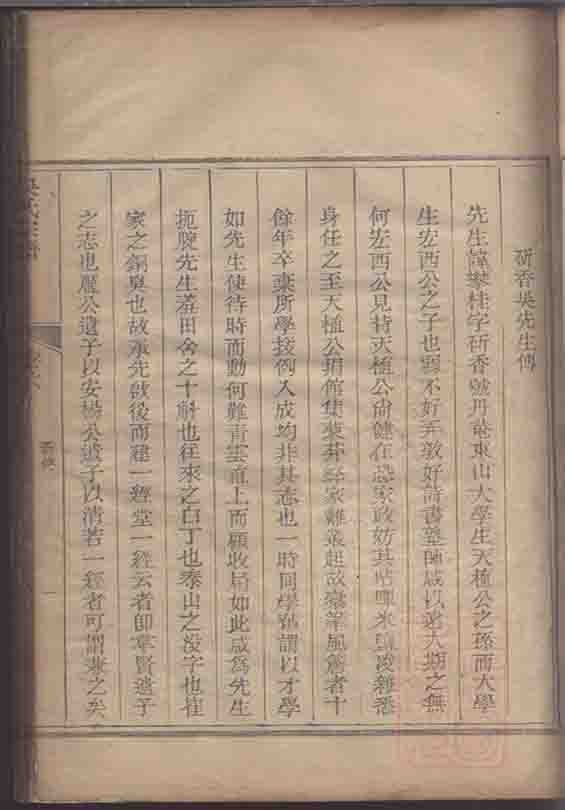 研香吳先生傳
先生諱攀桂字研香號丹菴東山大學生天植公之孫而大學
生宏西公之子也弱不好弄敦好詩書塾師咸以遠大期之無
何宏西公見背天植公尚健在恐家政妨其呫嗶米鹽凌雜悉
身任之至天植公捐館集蓼茹家難叢起故毫筆風簷者十
餘年卒棄所學援例入成均非其志也一時同學咸謂以才學
如先生使待時而動何難青雲直上而顧收局如此咸爲先生
扼腕先生羞田舍之十斛也往來之白丁也泰山之沒字也崔
家之銅臭也故承先啟後而建一經堂一經云者卽韋賢遺子
之志也龐公遺子以安楊公遺子以清若一經者可謂兼之矣